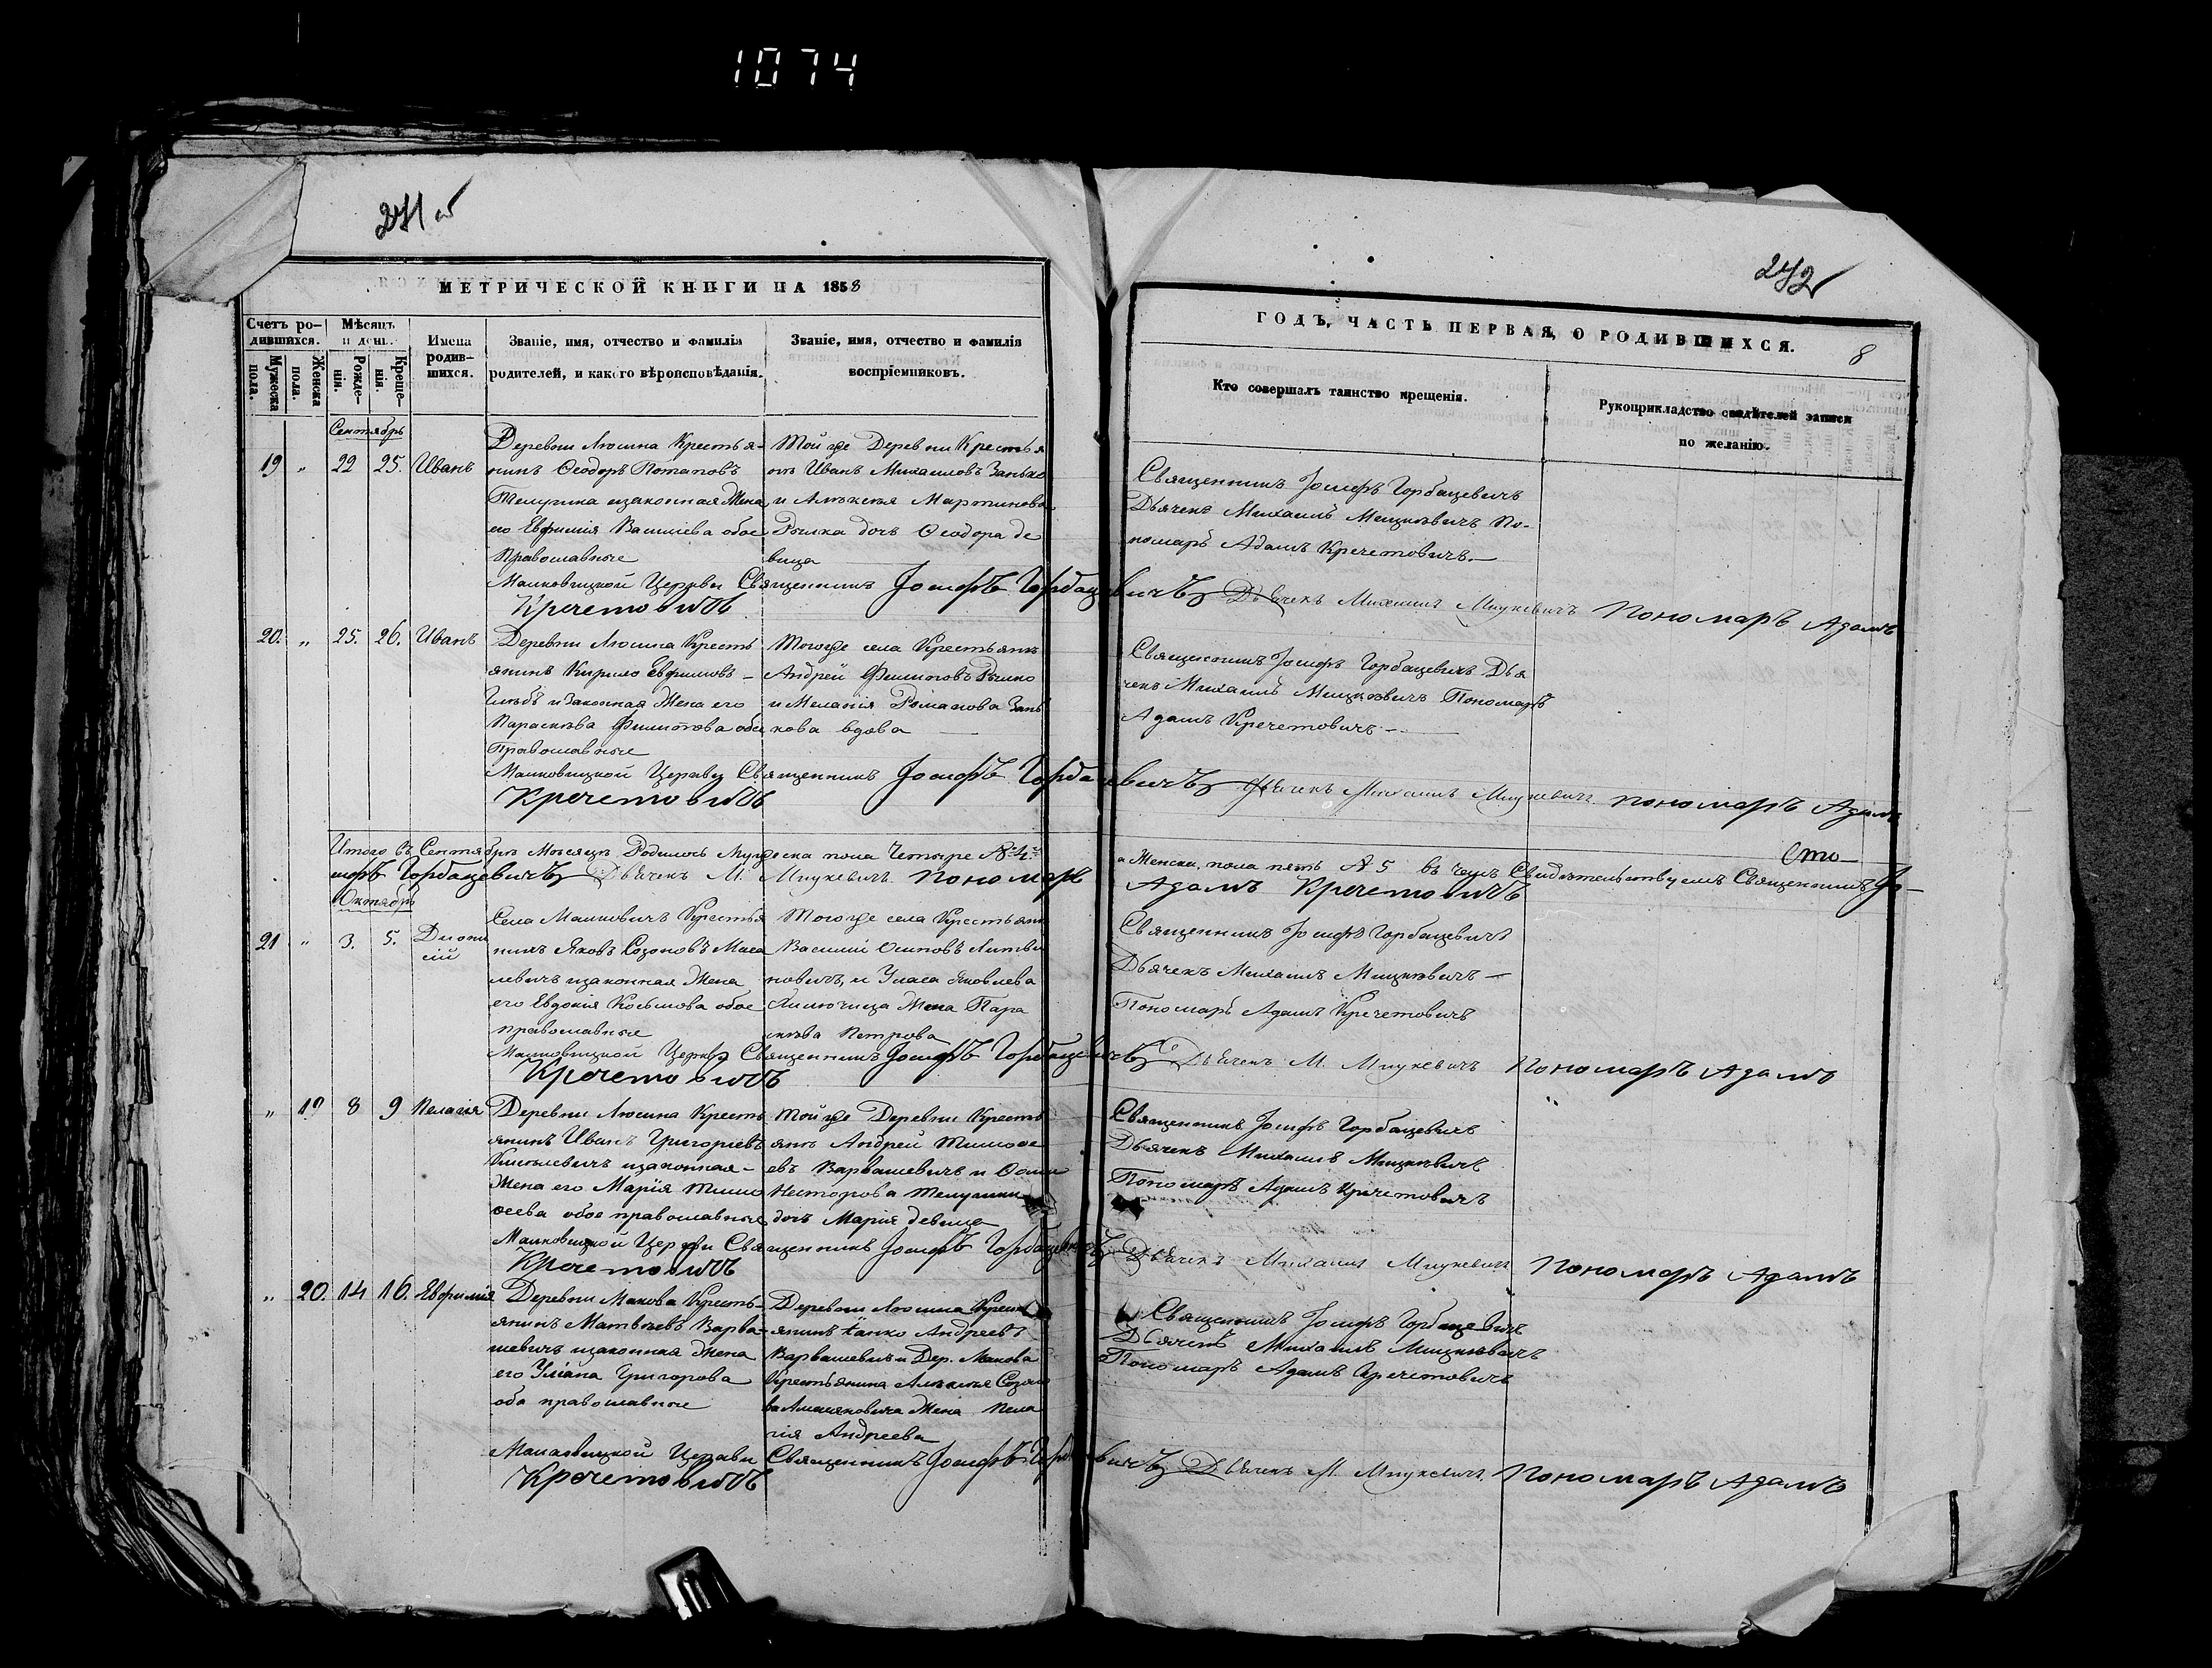 1074
271
272
МЕТРИЧЕСКОЙ КНИГИ НА 1858
ГОДЪ, ЧАСТЬ ПЕРВАЯ, О РОДИВШИХСЯ.
8
Счетъ ро-
дившихся.
Мужеска
пола.
Женска
пола.
Мѣсяцъ
и день.
Рожде-
нія.
Креще-
нія.
Имена
родив-
шихся.
Званіе, имя, отчество и фамилія
родителей, и какого вѣроисповѣданія.
Званіе, имя, отчество и фамилія
воспріемниковъ.
Кто совершалъ таинство крещенія.
Рукоприкладство свидѣтелей записи
по желанію.
Сентябрь
19 „ 22 25. Иванъ
Деревни Люсина Крестья-
нинъ Ѳеодоръ Потаповъ
изаконная Жена
его Евфимія Васильева обое
Православные
Той же Деревни Крестья
Иванъ Михаиловъ Занько
и Мартинова
дочь Ѳеодора де
вица
Священникъ Іосифъ Горбацевичъ
Дьячекъ Михаилъ Мицкевичъ По-
номарь Адамъ Кречетовичъ.
Малковицкой Церкви Священникъ Іосифъ Горбацевичъ Дьячекъ Михаилъ Мицкевичъ Пономаръ Адамъ
Кречетовичъ
20. „ 25. 26. Иванъ
Деревни Люсина Кресть
янинъ Кирило Евфимовъ
изаконная Жена его
Параскева Филипова обое
Православные
Тогоже села Крестьянинъ
Андрей Филиповъ
и Меланія Романова Зань
кова вдова
Священникъ Іосифъ Горбацевичъ Дья
чекъ Михаилъ Мицкевичъ Пономарь
Адамъ Кречетовичъ
Малковицкой Церкви Священникъ Іосифъ Горбацевичъ Дьячекъ Михаилъ Мицкевичъ пономаръ Адамъ
Кречетовичъ
Итого въ Сентябрѣ Мѣсяцѣ Родилось Мужеска пола Четыре №4. а Женска пола пять №5 въ чемъ Свидѣтельствуемъ Священникъ Іо-
сифъ Горбацевичъ Дьячекъ М. Мицкевичъ Пономаръ Адамъ Кречетовичъ
Октябрь
21 „ 3. 5. Діони
сій
Села Малковичъ Крестья
нинъ Яковъ Созоновъ Маса
левичъ изаконная Жена
его Евдокія Косьмова обое
православные
Тогоже села Крестьянинъ
Василій Осиповъ Литви
новичъ, и Уласа Яковлева
Жена Пара
скева Петрова
Священникъ Іосифъ Горбацевичъ
Дьячекъ Михаилъ Мицкевичъ
Пономарь Адамъ Кречетовичъ
Малковицкой Церкви Священникъ Іосифъ Горбацевичъ Дьячекъ М. Мицкевичъ Пономаръ Адамъ
Кречетовичъ
„ 19 8 9 Пелагія
Деревни Люсина Кресть
янинъ Иванъ Григоріевъ
изаконная
Жена его Марія Тимо
ѳеева обое православные
Той же Деревни Кресть
янъ Андрей Тимоѳе
евъ Варвашевичъ и
Несторова
дочь Марія девица
Священникъ Іосифъ Горбацевичъ
Дьячекъ Михаилъ Мицкевичъ
Пономарь Адамъ Кречетовичъ
Малковицкой Церкви Священникъ Іосифъ Горбацевичъ Дьячекъ Михаилъ Мицкевичъ Пономаръ Адамъ
Кречетовичъ
„ 20. 14 16. Евфимія
Деревни Макова Кресть-
янинъ Матвѣевъ Варва-
шевичъ изаконная Жена
его Уліана Григорова
оба православные
Деревни Люсина Крест
янинъ Андреевъ
Варвашевичъ и Дер. Макова
Крестьянина
Жена Пела
гія Андреева
Священникъ Іосифъ Горбацевичъ
Дьячекъ Михаилъ Мицкевичъ
Пономарь Адамъ Кречетовичъ
Малковицкой Церкви Священникъ Іосифъ Горбацевичъ Дьячекъ М. Мицкевичъ Пономаръ Адамъ
Кречетовичъ